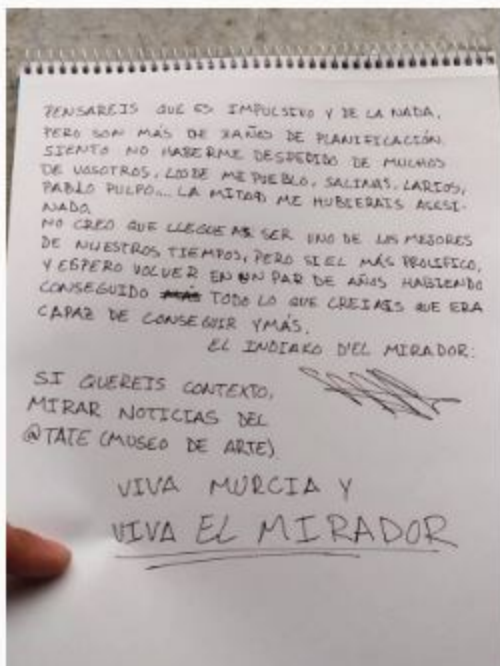 PENSAREIS QUE ES IMPULSIVO Y DE LA NADA,
PERO SON MÁS DE 3 AÑOS DE PLANIFICACIÓN.
SIENTO NO HABERME DESPEDIDO DE MUCHOS
DE VOSOTROS, LOS DE MI PUEBLO, SALINAS, LARIOS,
PABLO PULPO... LA MITAD ME HUBIERAIS ASESI-
NADO.
NO CREO QUE LLEGUE A SER UNO DE LOS MEJORES
DE NUESTROS TIEMPOS, PERO SI EL MÁS PROLIFICO,
Y ESPERO VOLVER EN UN PAR DE AÑOS HABIENDO
CONSEGUIDO TODO LO QUE CREIAIS QUE ERA
CAPAZ DE CONSEGUIR Y MÁS.
EL INDIAKO D'EL MIRADOR:
SI QUEREIS CONTEXTO,
MIRAR NOTICIAS DEL
@TATE (MUSEO DE ARTE)
VIVA MURCIA Y
VIVA EL MIRADOR